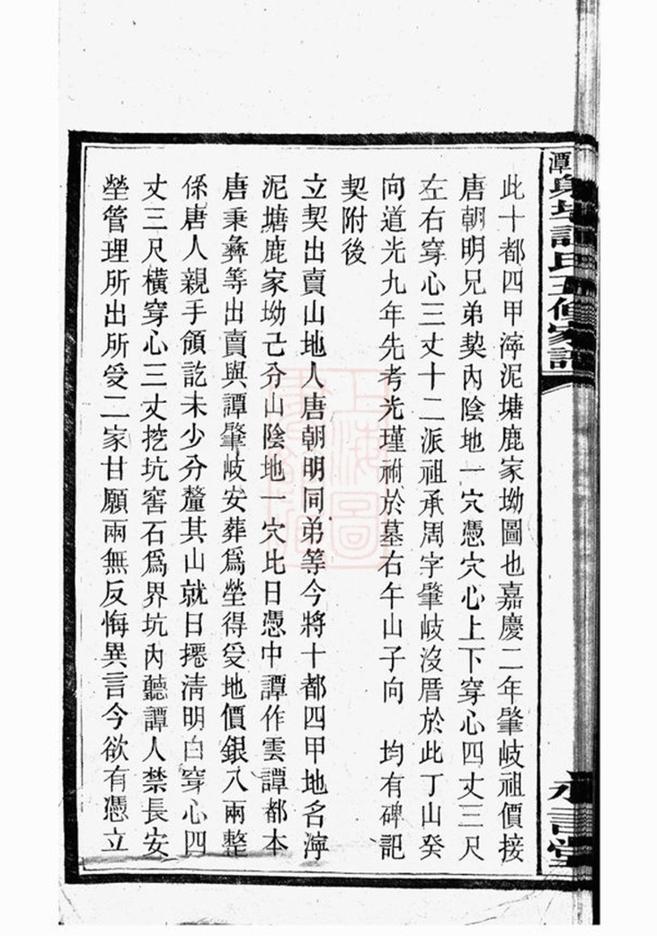 此十都四甲濘泥塘鹿家坳圖也嘉慶二年肇岐祖價接
唐朝明兄弟契內陰地一穴憑穴心上下穿心四丈三尺
左右穿心三丈十二派祖承周字肇岐沒厝於此丁山癸
向道光九年先考光瑾祔於墓右午山子向 均有碑記
契附後
立契出賣山地人唐朝明同弟等今將十都四甲地名濘
泥塘鹿家坳己分山陰地一穴比日憑中譚作雲譚都本
唐秉彝等出賣與譚肇岐安葬爲塋得受地價銀八兩整
係唐人親手領訖未少分釐其山就日𢹂清明白穿心四
丈三尺橫穿心三丈挖坑窖石爲界坑內聽譚人禁長安
塋管理所出所受二家甘願兩無反悔異言今欲有憑立
上海圖